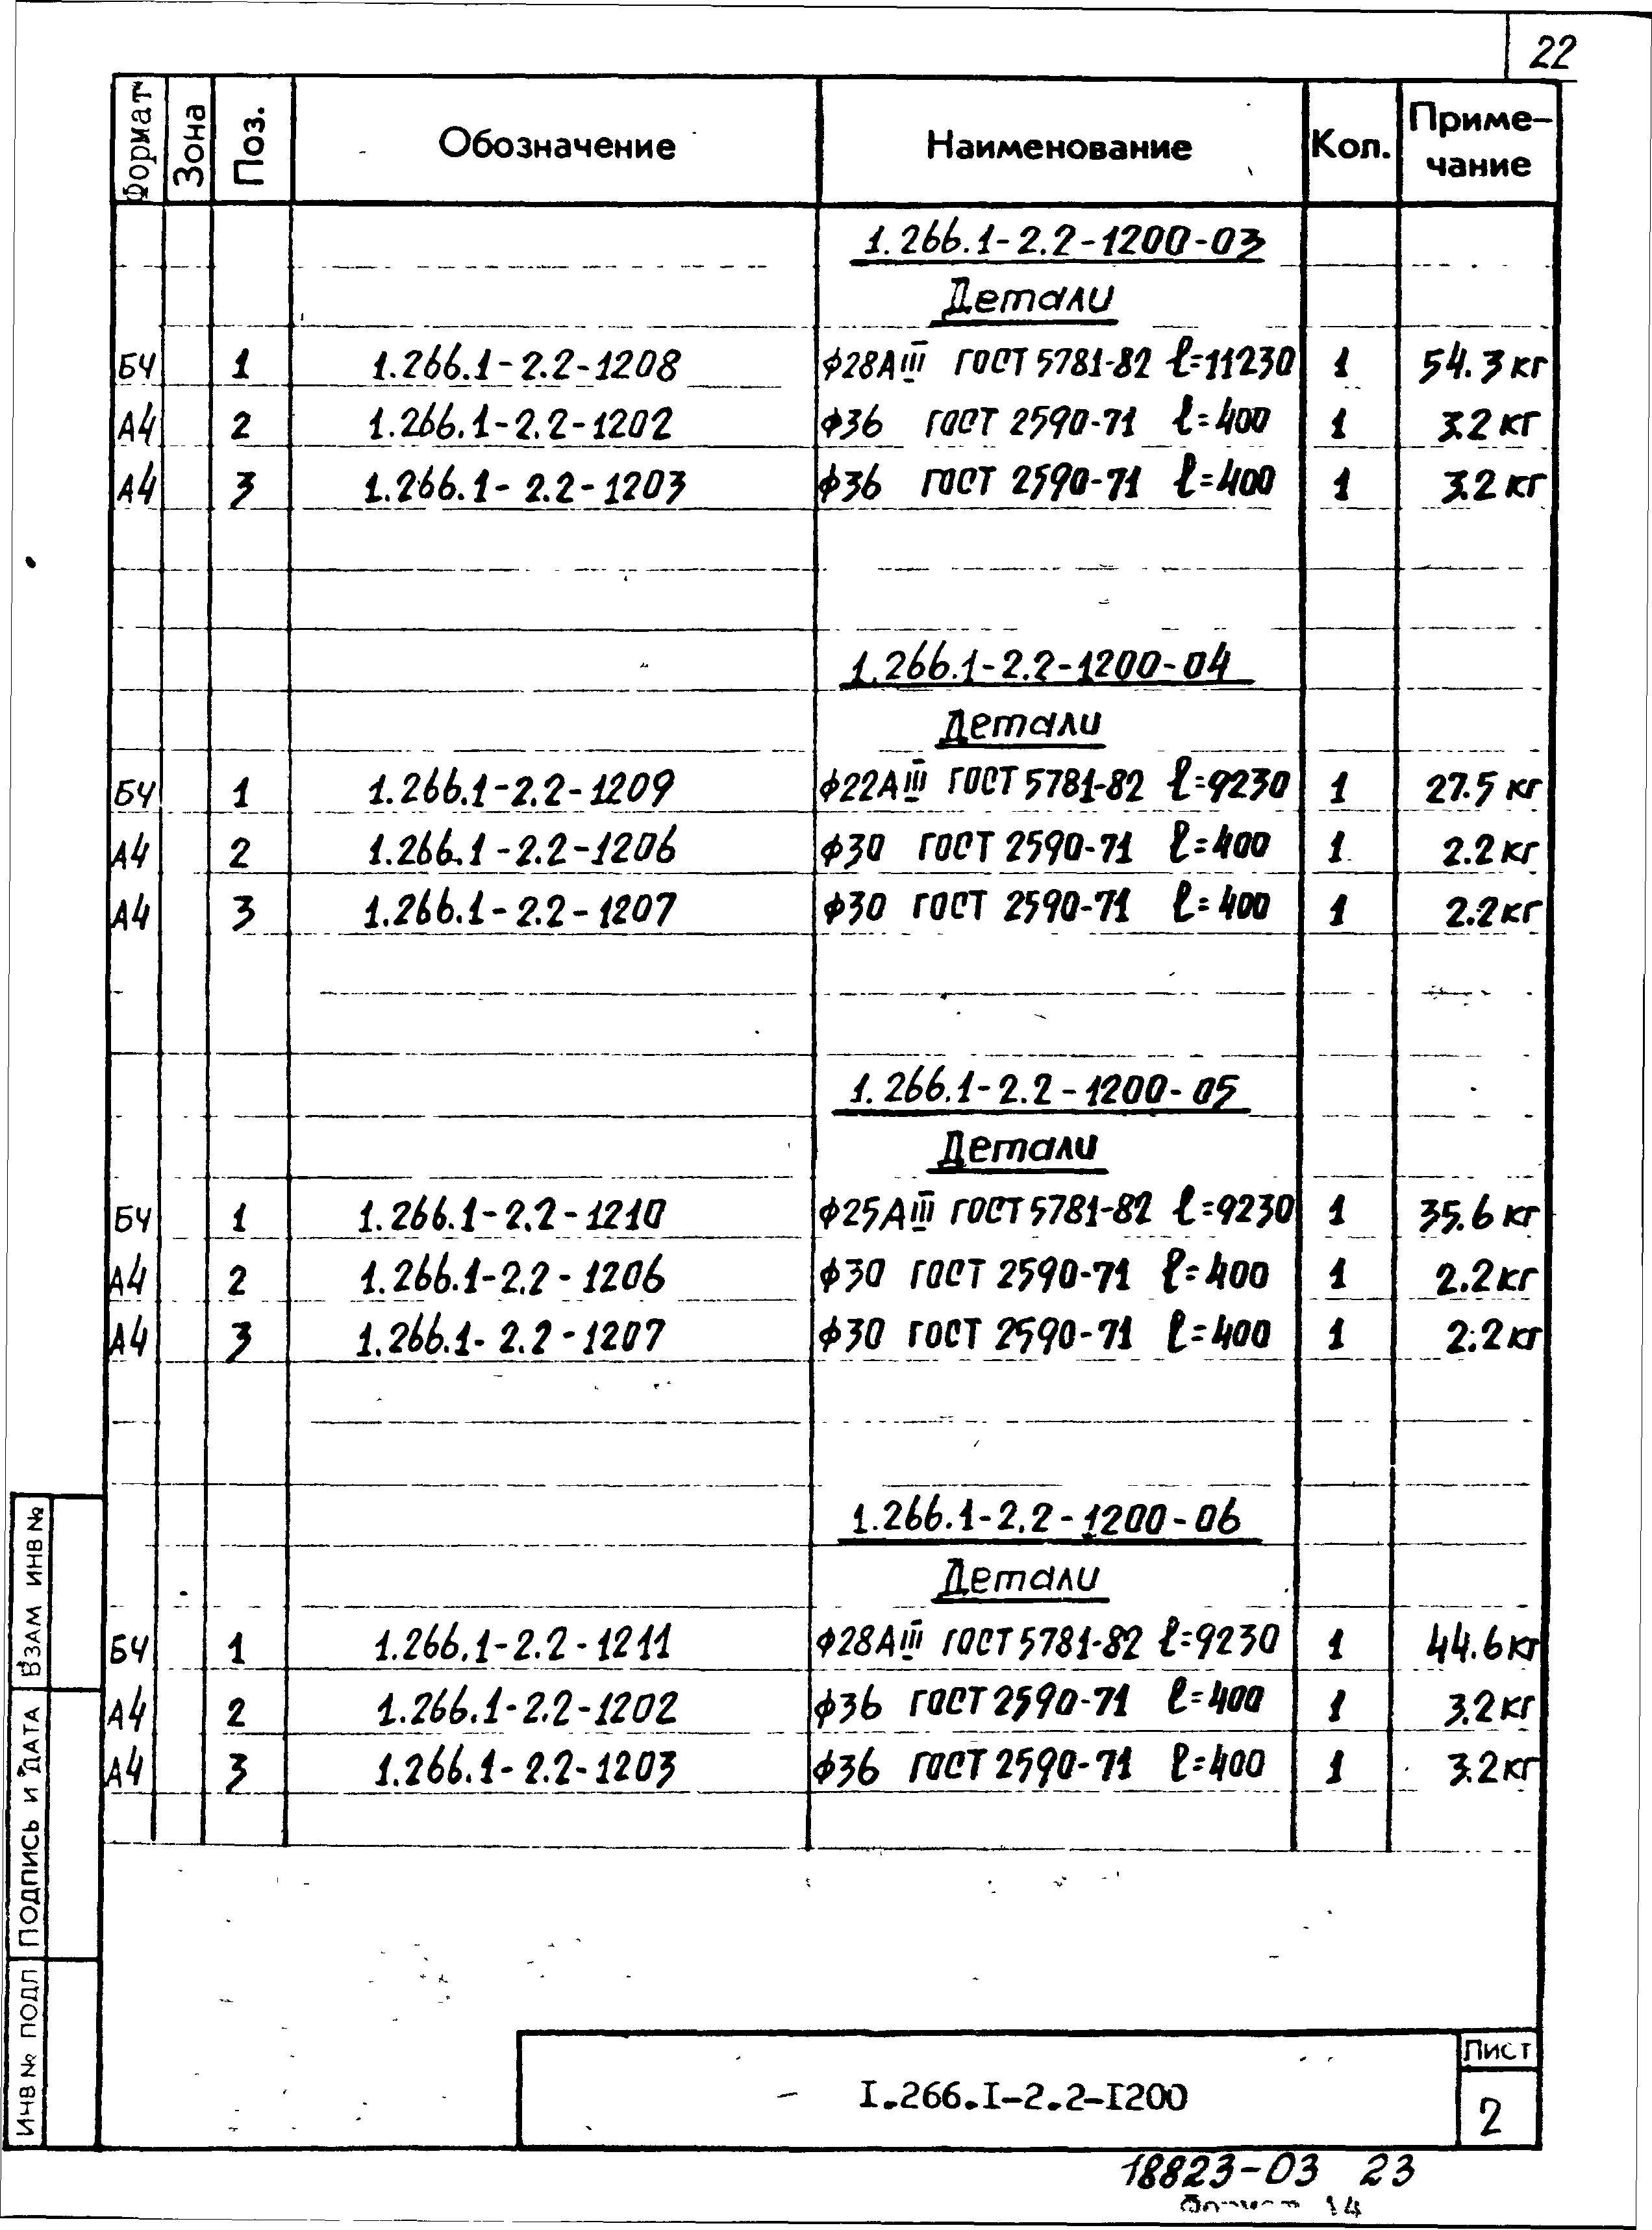 22
Формат Зона Поз. Обозначение Наименование Кол. Приме-
чание
1.266.1-2.2-1200-03
Детали
БЧ 1 1.266.1-2.2-1208 ф28АIII ГОСТ 5781-82 ℓ=11230 1 54.3 кг
А4 2 1.266.1-2.2-1202 ф36 ГОСТ 2590-71 ℓ=400 1 3.2 кг
А4 3 1.266.1-2.2-1203 ф36 ГОСТ 2590-71 ℓ=400 1 3.2 кг
1.266.1-2.2-1200-04
Детали
БЧ 1 1.266.1-2.2-1209 ф22АIII ГОСТ 5781-82 ℓ=9230 1 27.5 кг
А4 2 1.266.1-2.2-1206 ф30 ГОСТ 2590-71 ℓ=400 1 2.2 кг
А4 3 1.266.1-2.2-1207 ф30 ГОСТ 2590-71 ℓ=400 1 2.2 кг
1.266.1-2.2-1200-05
Детали
БЧ 1 1.266.1-2.2-1210 ф25АIII ГОСТ 5781-82 ℓ=9230 1 35.6 кг
А4 2 1.266.1-2.2-1206 ф30 ГОСТ 2590-71 ℓ=400 1 2.2 кг
А4 3 1.266.1-2.2-1207 ф30 ГОСТ 2590-71 ℓ=400 1 2.2 кг
1.266.1-2.2-1200-06
Детали
БЧ 1 1.266.1-2.2-1211 ф28АIII ГОСТ 5781-82 ℓ=9230 1 44.6 кг
А4 2 1.266.1-2.2-1202 ф36 ГОСТ 2590-71 ℓ=400 1 3.2 кг
А4 3 1.266.1-2.2-1203 ф36 ГОСТ 2590-71 ℓ=400 1 3.2 кг
ВЗАМ ИНВ №
ПОДПИСЬ И ДАТА
ИНВ № ПОДЛ
I.266.I-2.2-I200
Лист
2
18823-03 23
Формат